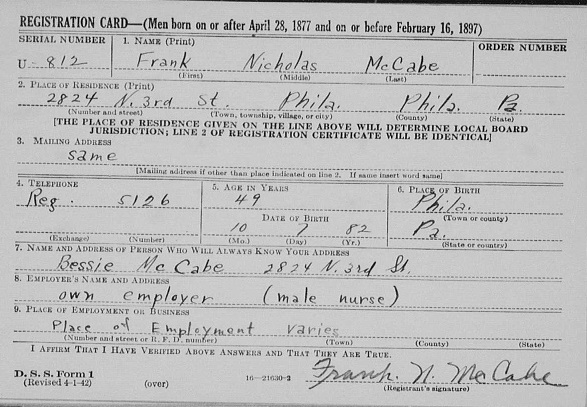 REGISTRATION CARD—(Men born on or after April 28, 1877 and on or before February 16, 1897)
SERIAL NUMBER 1. NAME (Print) ORDER NUMBER
U 812 Frank Nicholas McCabe
(First) (Middle) (Last)
2. PLACE OF RESIDENCE (Print)
2824 N. 3rd St. Phila. Phila. Pa.
(Number and street) (Town, township, village, or city) (County) (State)
[THE PLACE OF RESIDENCE GIVEN ON THE LINE ABOVE WILL DETERMINE LOCAL BOARD
JURISDICTION; LINE 2 OF REGISTRATION CERTIFICATE WILL BE IDENTICAL]
3. MAILING ADDRESS
same
[Mailing address if other than place indicated on line 2. If same insert word same]
4. TELEPHONE 5. AGE IN YEARS 6. PLACE OF BIRTH
Reg. 5126 49 Phila.
DATE OF BIRTH (Town or county)
10 7 82 Pa.
(Exchange) (Number) (Mo.) (Day) (Yr.) (State or country)
7. NAME AND ADDRESS OF PERSON WHO WILL ALWAYS KNOW YOUR ADDRESS
Bessie McCabe 2824 N. 3rd St.
8. EMPLOYER'S NAME AND ADDRESS
own employer (male nurse)
9. PLACE OF EMPLOYMENT OR BUSINESS
Place of Employment varies
(Number and street or R. F. D. number) (Town) (County) (State)
I AFFIRM THAT I HAVE VERIFIED ABOVE ANSWERS AND THAT THEY ARE TRUE.
D. S. S. Form 1
(Revised 4-1-42) (over) 16—21630-2 Frank N. McCabe
(Registrant's signature)